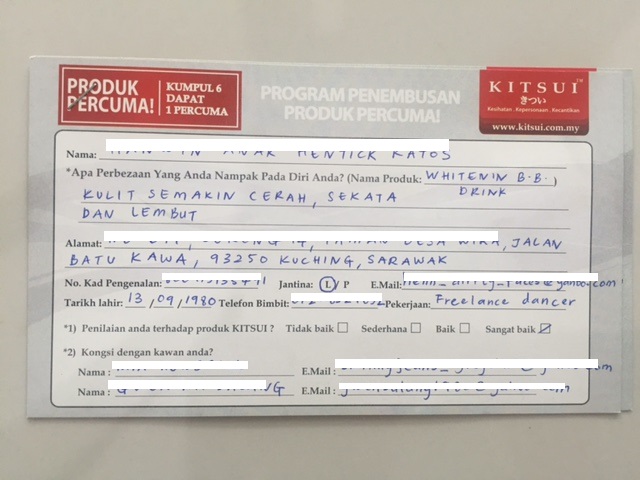 PRODUK PERCUMA!
KUMPUL 6 DAPAT 1 PERCUMA
PROGRAM PENEMBUSAN
PRODUK PERCUMA!
KITSUI™
きつい
Kesihatan . Kepersonaan . Kecantikan
www.kitsui.com.my
Nama:
*Apa Perbezaan Yang Anda Nampak Pada Diri Anda? (Nama Produk: WHITENIN B.B. DRINK)
KULIT SEMAKIN CERAH, SEKATA
DAN LEMBUT
Alamat: JALAN
BATU KAWA, 93250 KUCHING, SARAWAK
No. Kad Pengenalan: Jantina: L / P E.Mail:
Tarikh lahir: 13 / 09 / 1980 Telefon Bimbit: Pekerjaan: Freelance dancer
*1) Penilaian anda terhadap produk KITSUI ? Tidak baik Sederhana Baik Sangat baik
*2) Kongsi dengan kawan anda?
Nama : E.Mail :
Nama : E.Mail :